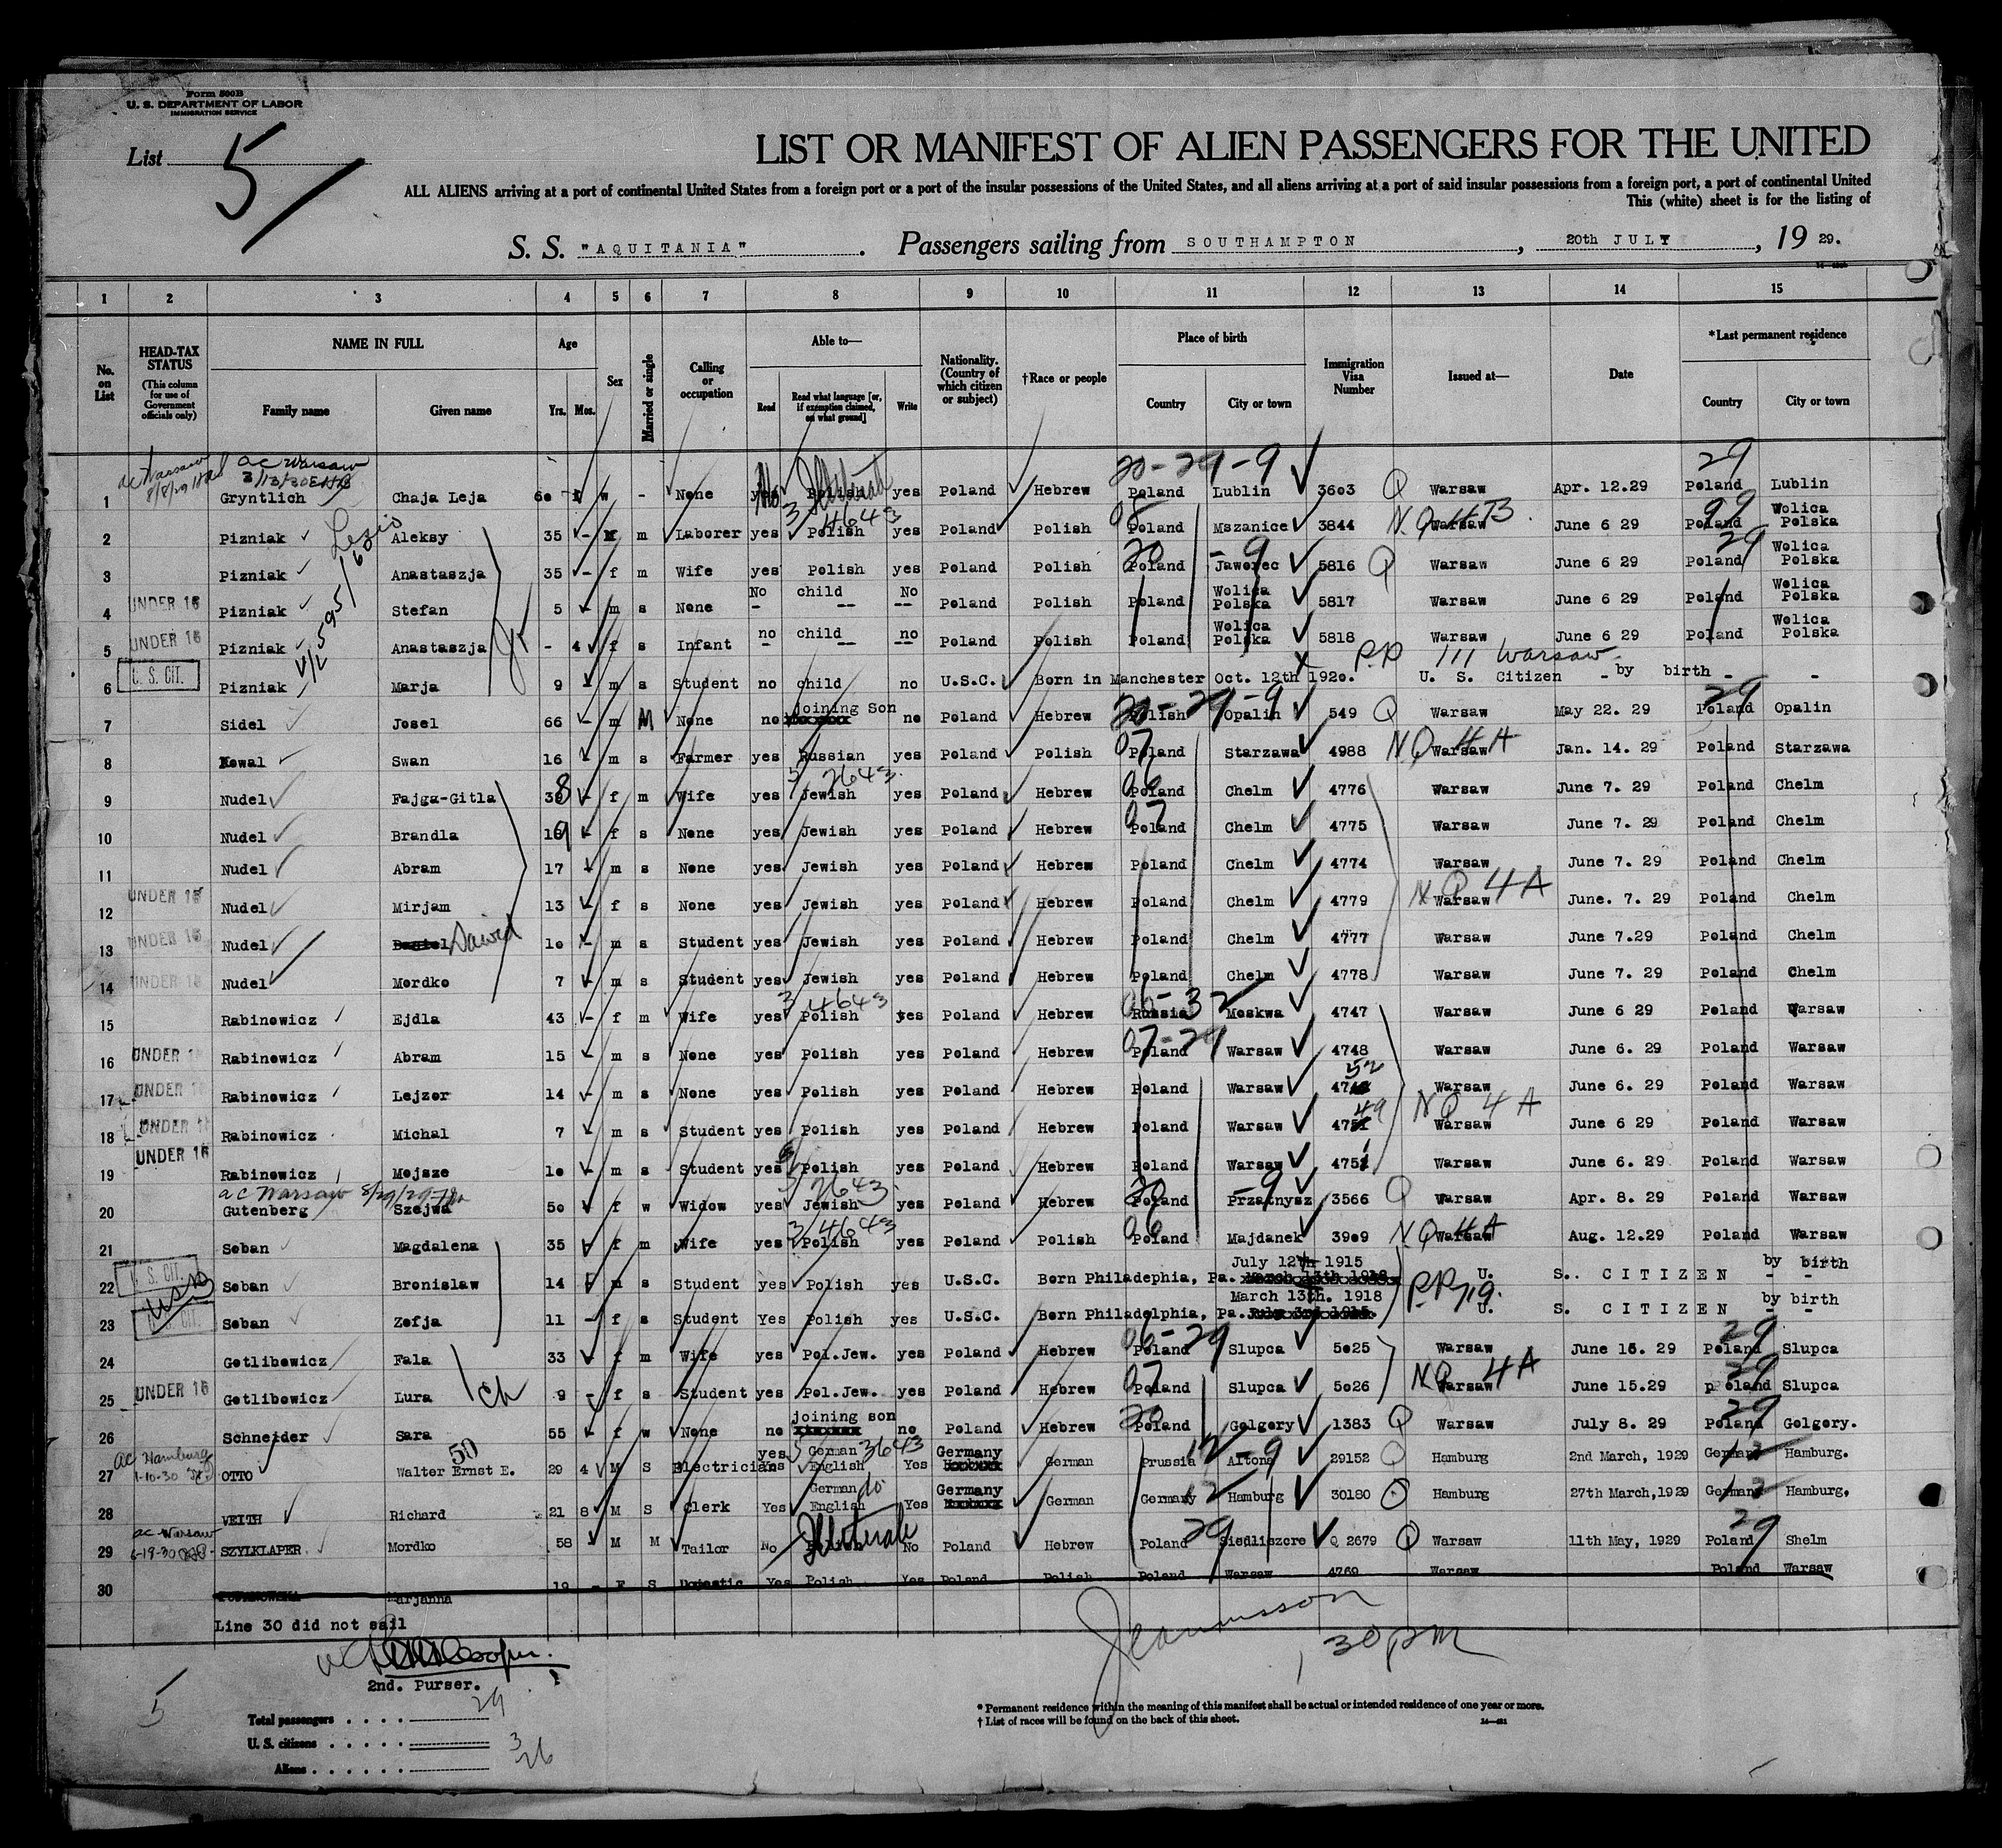 Form 500B
U. S. DEPARTMENT OF LABOR
IMMIGRATION SERVICE
List 5
LIST OR MANIFEST OF ALIEN PASSENGERS FOR THE UNITED
ALL ALIENS arriving at a port of continental United States from a foreign port or a port of the insular possessions of the United States, and all aliens arriving at a port of said insular possessions from a foreign port, a port of continental United
This (white) sheet is for the listing of
S. S. "AQUITANIA". Passengers sailing from SOUTHAMPTON, 20th JULY, 19 29.
1 2 3 4 5 6 7 8 9 10 11 12 13 14 15
No. on List
HEAD-TAX STATUS (This column for use of Government officials only)
NAME IN FULL Family name Given name
Age Yrs. Mos.
Sex
Married or single
Calling or occupation
Able to— Read Read what language [or, if exemption claimed, on what ground] Write
Nationality. (Country of which citizen or subject)
†Race or people
Place of birth Country City or town
Immigration Visa Number
Issued at—
Date
*Last permanent residence Country City or town
ac Warsaw 8/8/29 ac Warsaw 3/13/30 20-29-9 29
1 Gryntlich Chaja Leja 60 w - None yes No Polish Illiterate yes Poland Hebrew Poland Lublin 3603 Q Warsaw Apr. 12.29 Poland Lublin
3 4643 08 NQ 4B 99
2 Pizniak Aleksy 35 - M m Laborer yes Polish yes Poland Polish Poland Mszanice 3844 Warsaw June 6 29 Poland Wolica Polska
20 -9 29
3 Pizniak Anastaszja 35 - f m Wife yes Polish yes Poland Polish Poland Jaworec 5816 Q Warsaw June 6 29 Poland Wolica Polska
4 UNDER 16 Pizniak Stefan 5 - m s None No - child -- No -- Poland Polish Poland Wolica Polska 5817 Warsaw June 6 29 Poland Wolica Polska
5 UNDER 16 Pizniak Anastaszja - 4 f s Infant no - child -- no - Poland Polish Poland Wolica Polska 5818 Warsaw June 6 29 Poland Wolica Polska
P.P. 111 Warsaw
6 U. S. CIT. Pizniak Marja 9 - m s Student no child no U.S.C. Born in Manchester Oct. 12th 1920. U. S. Citizen - by birth - -
7 Sidel Josel 66 - m M None no joining son no Poland Hebrew Polish 20-29-9 Opalin 549 Q Warsaw May 22. 29 Poland 29 Opalin
8 Kowal Swan 16 - m s Farmer yes Russian yes Poland Polish Poland 07 Starzawa 4988 NQ 4A Warsaw Jan. 14. 29 Poland Starzawa
3 2643
9 Nudel Fajga-Gitla 38 - f m Wife yes Jewish yes Poland Hebrew Poland 06 Chelm 4776 Warsaw June 7. 29 Poland Chelm
10 Nudel Brandla 19 - f s None yes Jewish yes Poland Hebrew Poland 07 Chelm 4775 Warsaw June 7. 29 Poland Chelm
11 Nudel Abram 17 - m s None yes Jewish yes Poland Hebrew Poland Chelm 4774 Warsaw June 7. 29 Poland Chelm
12 UNDER 16 Nudel Mirjam 13 - f s None yes Jewish yes Poland Hebrew Poland Chelm 4779 NQ 4A Warsaw June. 7. 29 Poland Chelm
13 UNDER 16 Nudel Dawid 10 - m s Student yes Jewish yes Poland Hebrew Poland Chelm 4777 Warsaw June 7.29 Poland Chelm
14 UNDER 16 Nudel Mordko 7 - m s Student yes Jewish yes Poland Hebrew Poland Chelm 4778 Warsaw June 7. 29 Poland Chelm
3 4643
15 Rabinowicz Ejdla 43 - f m Wife yes Polish yes Poland Hebrew Russia 06-32 Moskwa 4747 Warsaw June 6 29 Poland Warsaw
16 UNDER 16 Rabinowicz Abram 15 - m s None yes Polish yes Poland Hebrew Poland 07-29 Warsaw 4748 Warsaw June 6. 29 Poland Warsaw
17 UNDER 16 Rabinowicz Lejzor 14 - m s None yes Polish yes Poland Hebrew Poland Warsaw 4752 Warsaw June 6. 29 Poland Warsaw
18 UNDER 16 Rabinowicz Michal 7 - m s Student yes Polish yes Poland Hebrew Poland Warsaw 4749 NQ 4A Warsaw June 6 29 Poland Warsaw
19 UNDER 16 Rabinowicz Mojsze 10 - m s Student yes Polish yes Poland Hebrew Poland Warsaw 4751 Warsaw June 6. 29 Poland Warsaw
ac Warsaw 8/29/29 3 2643
20 Gutenberg Szejwa 50 - f w Widow yes Jewish yes Poland Hebrew Poland 20 -9 Przatnysz 3566 Q Warsaw Apr. 8. 29 Poland Warsaw
3 4643
21 Soban Magdalena 35 - f m Wife yes Polish yes Poland Polish Poland 06 Majdanek 3909 NQ 4A Warsaw Aug. 12.29 Poland Warsaw
22 U. S. CIT. Soban Bronislaw 14 - m s Student yes Polish yes U.S.C. Born Philadephia, Pa. July 12th 1915 March 13th 1918 U. S. CITIZEN - by birth -
P.P. 719.
23 U. S. CIT. Soban Zofja 11 - f s Student Yes Polish yes U.S.C. Born Philadelphia, Pa. March 13th. 1918 U. S. CITIZEN - by birth -
24 Gotlibowicz Fala 33 - f m Wife yes Pol.Jew. yes Poland Hebrew Poland 06-29 Slupca 5025 Warsaw June 15. 29 Poland 29 Slupca
25 UNDER 16 Gotlibowicz Lura ch 9 - f s Student yes Pol.Jew. yes Poland Hebrew Poland 07 Slupca 5026 NQ 4A Warsaw June 15.29 Poland 29 Slupca
26 Schneider Sara 55 - f w None no joining son no Poland Hebrew Poland 20 Golgory 1383 Q Warsaw July 8. 29 Poland 29 Golgory.
ac Hamburg 1-10-30 50
27 OTTO Walter Ernst E. 29 4 M S Electrician yes Yes German English 3 3643 Yes Germany German Prussia 12-9 Altona 29152 Q Hamburg 2nd March, 1929 Germany 12 Hamburg.
28 VEITH Richard 21 8 M S Clerk Yes German English do Yes Germany German Germany 12 Hamburg 30180 Q Hamburg 27th March,1929 Germany 12 Hamburg.
ac Warsaw 6-19-30
29 SZYLKLAPER Mordko 58 - M M Tailor No Illiterate No Poland Hebrew Poland 29 Siedliszcre Q 2679 Q Warsaw 11th May, 1929 Poland 29 Shelm
30 Marjanna 19 - F S Domestic Yes Polish Yes Poland Polish Poland Warsaw 4769 Warsaw Poland Warsaw
Line 30 did not sail
2nd. Purser.
1 30 pm
5
Total passengers . . . . 29
U. S. citizens . . . . . 3
Aliens . . . . . . 26
* Permanent residence within the meaning of this manifest shall be actual or intended residence of one year or more.
† List of races will be found on the back of this sheet.